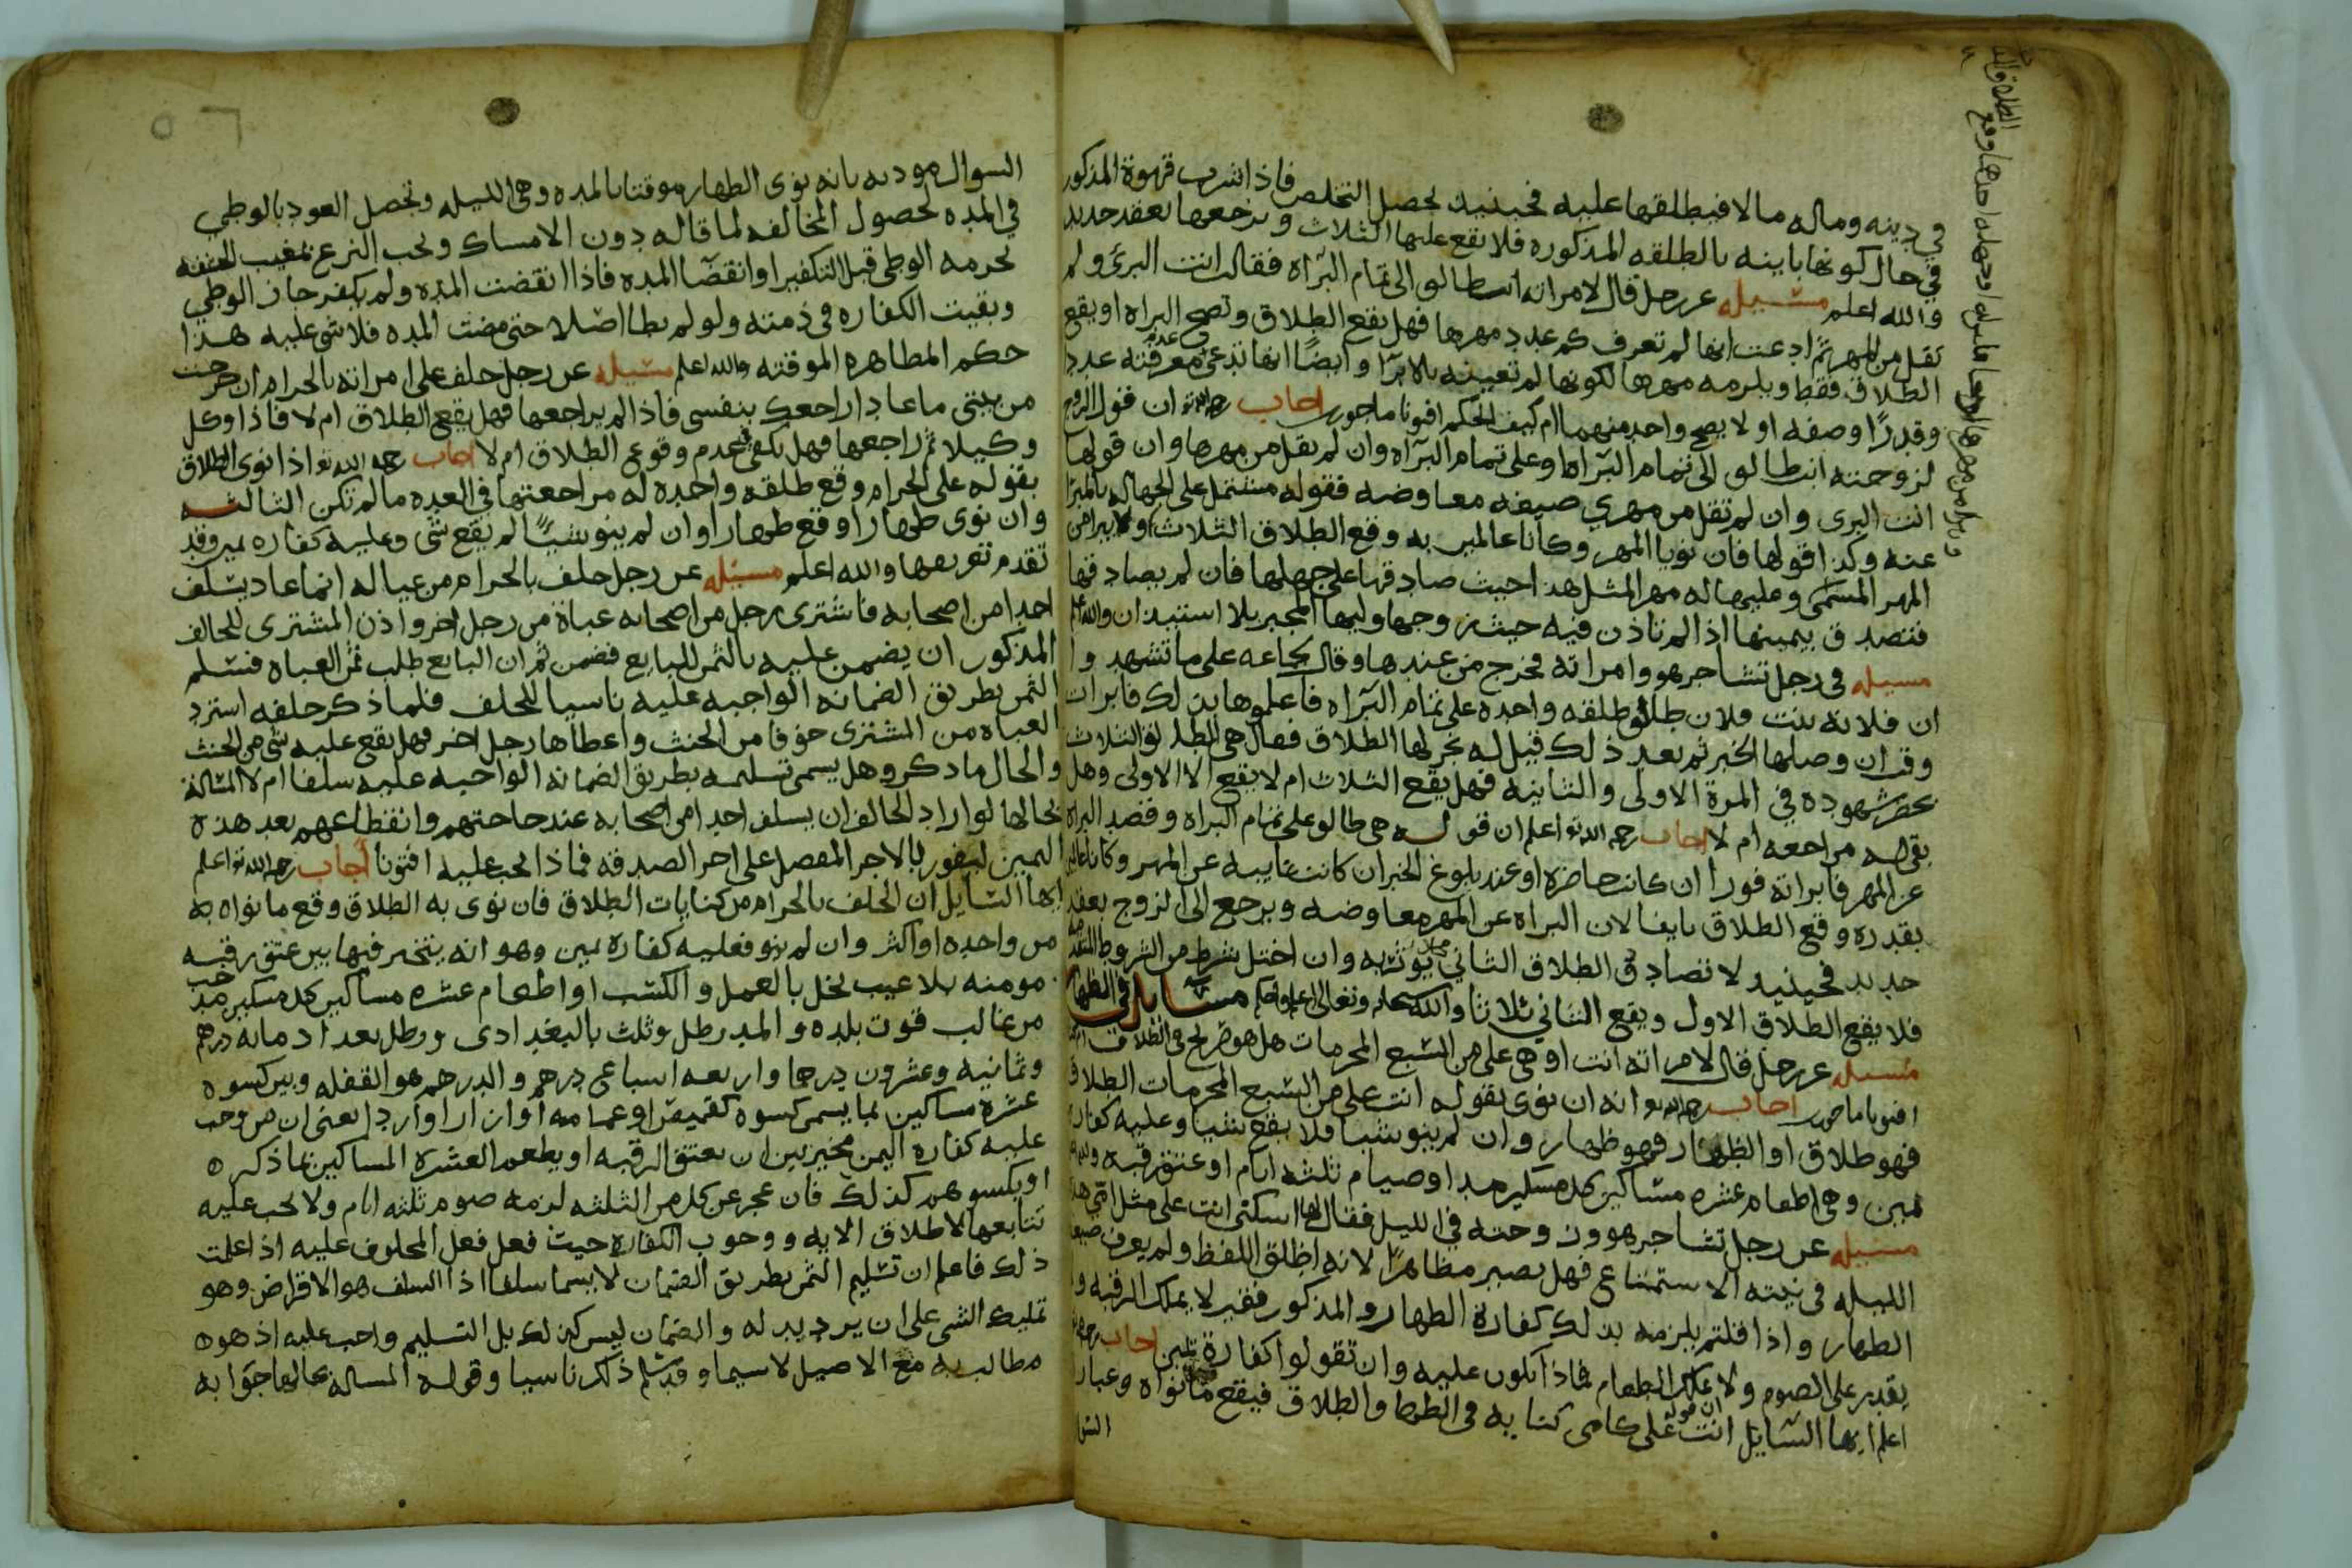 في دينه وماله مالا فيطلقها عليه فحينيذ يحصل التخلص فاذا شرب قهوة المذكور
في حال كونها باينه بالطلقه المذكوره فلا يقع عليها الثلاث ويرجعها بعقد جديد
والله اعلم مسيله عن رجل قال لامراته انت طالق الى تمام البراه فقالت انت البري ولم
تقل من المهر ثم ادعت انها لم تعرف كم عدد مهرها فهل يقع الطلاق وتصح البراه او يقع
الطلاق فقط ويلزمه مهرها لكونها لم تعينه بالابرا وايضا انها تدعي عدم معرفته عددا
وقدرا وصفه او لا يصح واحد منهما ام كيف الحكم افتونا ماجورين اجاب رحمه الله تعالى ان قول الزوج
لزوجته انت طالق الى تمام البراه او على تمام البراه وان لم يقل من مهرها وان قولها
انت البري وان لم تقل من مهري صيغه معاوضه فقوله مشتمل على الجهاله بالمبرا
عنه وكذا قولها فان نويا المهر وكانا عالمين به وقع الطلاق الثلاث
المهر المسمى وعليها له مهر المثل هذا حيث صادقها على جهلها فان لم يصادقها
فتصدق بيمينها اذا لم تاذن فيه حيث زوجها وليها المجبر بلا استيذان والله اعلم
مسيله في رجل تشاجر هو وامراته فخرج من عندها وقال لجماعه على ما تشهدوا
ان فلانه بنت فلان طالق طلقه واحده على تمام البراه فاعلموها بذلك فابرات
وقت ان وصلها الخبر ثم بعد ذلك قيل له نجز لها الطلاق فقال هي الطلاق الثلاث
بحضر شهوده في المرة الاولى والثانيه فهل يقع الثلاث ام لا يقع الا الاولى وهل
بقي له مراجعه ام لا اجاب رحمه الله تعالى اعلم ان قوله هي طالق على تمام البراه وقصد البراه
عن المهر فابراته فورا ان كانت حاضره او عند بلوغ الخبر ان كانت غايبه عن المهر وكانا عالمين
بقدره وقع الطلاق باينا لان البراه عن المهر معاوضه ويرجع الى الزوج بعقد
جديد فحينيذ لا تصادق الطلاق الثاني محلا يوثر به وان اختل شرط من الشروط المتقدمه
فلا يقع الطلاق الاول ويقع الثاني ثلاثا والله سبحانه وتعالى اعلم واحكم مسايل في الظهار
مسيله عن رجل قال لامراته انت او هي علي من السبع المحرمات هل هو صريح في الطلاق ام لا
افتونا ماجورين اجاب رحمه الله تعالى انه ان نوى بقوله انت علي من السبع المحرمات الطلاق
فهو طلاق او الظهار فهو ظهار وان لم ينو شيا فلا يقع شيا وعليه كفارة
يمين وهي اطعام عشره مساكين كل مسكين مد او صيام ثلثه ايام او عتق رقبه
مسيله عن رجل تشاجر هو وزوجته في الليل فقال لها اسكتي انت علي مثل امي هذه
الليله في نيته الاستمتاع فهل يصير مظاهرا لانه اطلق اللفظ ولم يعرف صيغه
الظهار واذا قلتم يلزمه بذلك كفارة الظهار والمذكور فقير لا يملك الرقبه ولا
يقدر على الصوم ولا يملك الطعام فماذا يكون عليه وان تقولوا كفارة يمين اجاب رحمه الله
اعلم ايها السايل ان قوله انت علي كامي كنايه في الظهار والطلاق فيقع ما نواه وعبارة
السوال
السوال موديه بانه نوى الظهار موقتا بالمده وهي الليله وتحصل العود بالوطي
في المده لحصول المخالفه لما قاله دون الامساك ويجب النزع بمغيب الحشفه
لحرمه الوطي قبل التكفير او انقضا المده فاذا انقضت المده ولم يكفر جاز الوطي
وبقيت الكفاره في ذمته ولو لم يطا اصلا حتى مضت المده فلا شي عليه هذا
حكم المظاهره الموقته والله اعلم مسيله عن رجل حلف على امراته بالحرام ان خرجت
من بيتي ما عاد اراجعك بنفسي فاذا لم يراجعها فهل يقع الطلاق ام لا فاذا وكل
وكيلا ثم راجعها فهل يكفي في عدم وقوع الطلاق ام لا اجاب رحمه الله تعالى اذا نوى الطلاق
بقوله علي الحرام وقع طلقه واحده له مراجعتها في العده ما لم تكن الثالثه
وان نوى ظهارا وقع ظهارا وان لم ينو شيئا لم يقع شي وعليه كفاره يمين وقد
تقدم تفريعها والله اعلم مسيله عن رجل حلف بالحرام من عياله انما عاد يسلف
احدا من اصحابه فاشترى رجل من اصحابه عباة من رجل اخر واذن المشترى للحالف
المذكور ان يضمن عليه بالثمن للبايع فضمن ثم ان البايع طلب ثمن العباه فسلم
الثمن بطريق الضمانه الواجبه عليه ناسيا للحلف فلما ذكر حلفه استرد
العباه من المشترى خوفا من الحنث واعطاها رجل اخر فهل يقع عليه شي من الحنث
والحال ما ذكر وهل يسمى تسليمه بطريق الضمانه الواجبه عليه سلفا ام لا المسالة
بحالها لو اراد الحالف ان يسلف احدا من اصحابه عند حاجتهم وانقطاعهم بعد هذه
اليمين ليفوز بالاجر المفضل على اجر الصدقه فماذا يجب عليه افتونا اجاب رحمه الله تعالى اعلم
ايها السايل ان الحلف بالحرام من كنايات الطلاق فان نوى به الطلاق وقع ما نواه به
من واحده او اكثر وان لم ينو فعليه كفاره يمين وهو انه يتخير فيها بين عتق رقبه
مومنه بلا عيب يخل بالعمل والكسب او اطعام عشره مساكين كل مسكين مد حب
من غالب قوت بلده والمد رطل وثلث بالبغدادي ورطل بغداد مايه درهم
وثمانيه وعشرون درهما واربعه اسباع درهم والدرهم هو القفله وبين كسوه
عشرة مساكين بما يسمى كسوه كقميص او عمامه او ازار او ردا يعني ان من وجب
عليه كفاره اليمين مخير بين ان يعتق الرقبه او يطعم العشره المساكين ما ذكره
او يكسوهم كذلك فان عجز عن كل من الثلثه لزمه صوم ثلثه ايام ولا يجب عليه
تتابعها لاطلاق الايه ووجوب الكفاره حيث فعل فعل المحلوف عليه اذا علمت
ذلك فاعلم ان تسليم الثمن بطريق الضمان لا يسما سلفا اذا السلف هو الاقراض وهو
تمليك الشي على ان يرد بدله والضمان ليس كذلك بل التسليم واجب عليه اذ هو
مطالب به مع الاصيل لا سيما وقد سلم ذلك ناسيا وقوله المساله بحالها جوابه